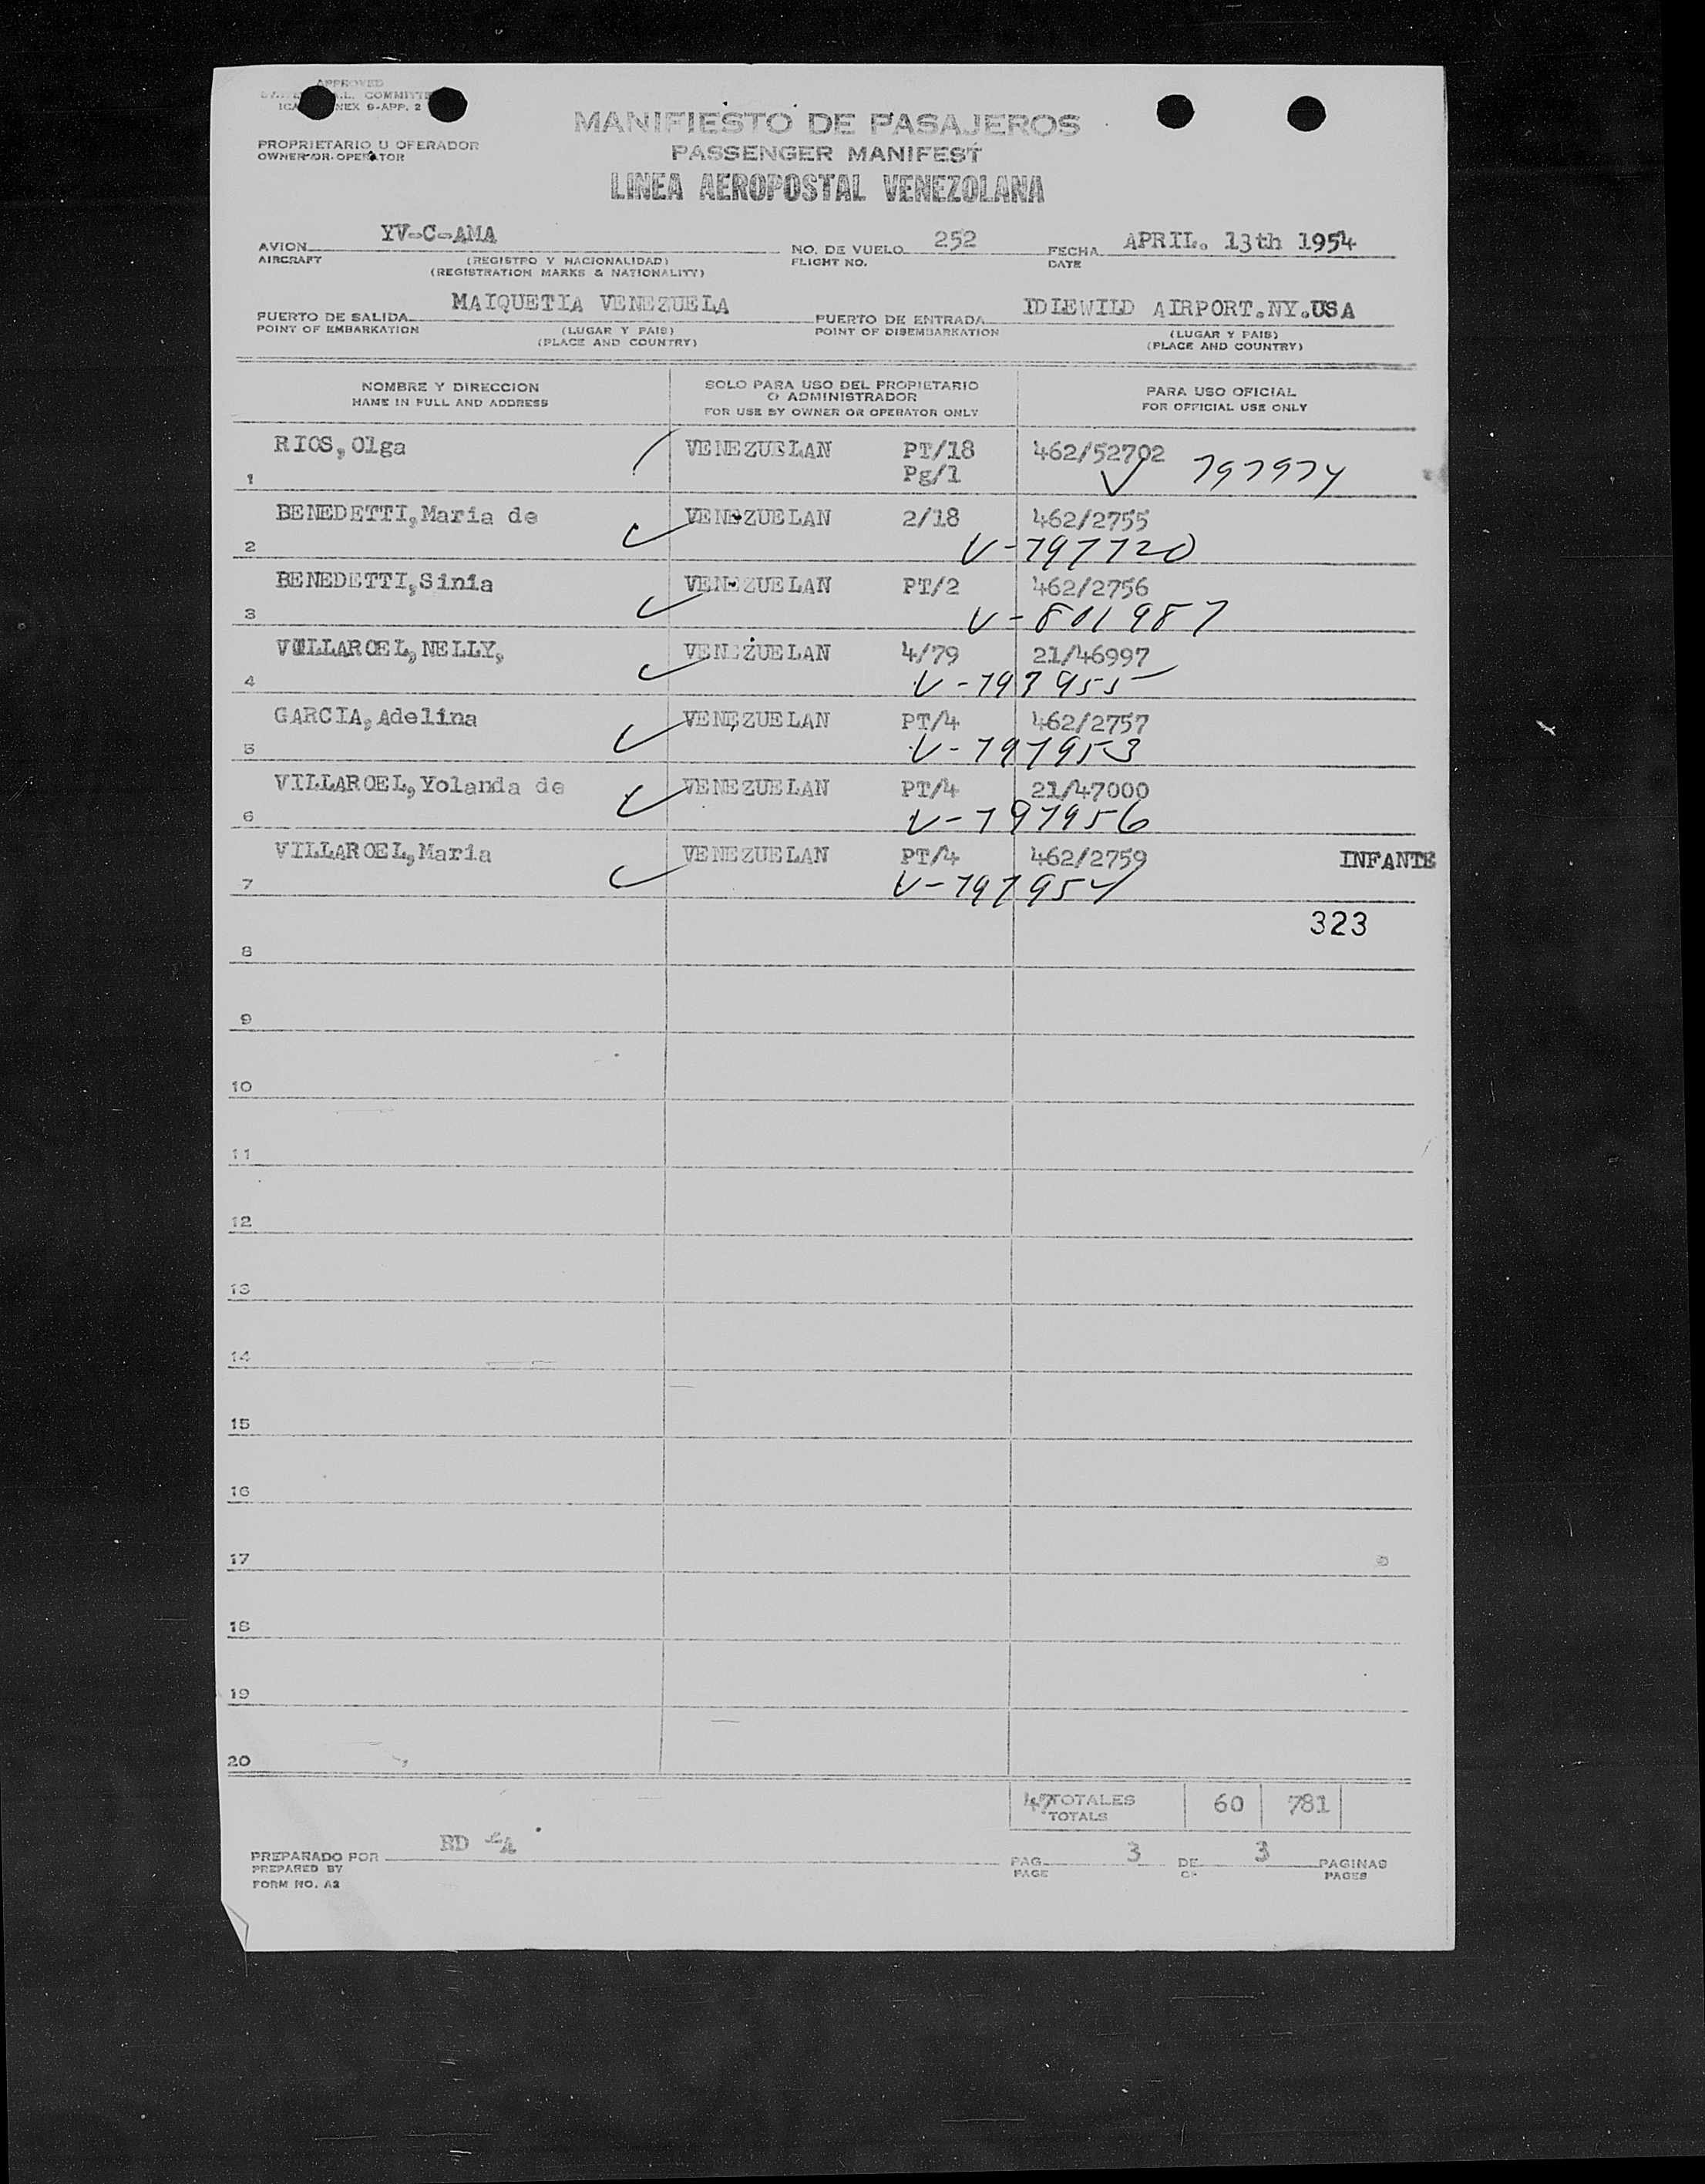 APPROVED
A.L. COMMITTE
ICA NEX 9-APP. 2
MANIFIESTO DE PASAJEROS
PROPRIETARIO U OPERADOR
OWNER OR OPERATOR
PASSENGER MANIFEST
LINEA AEROPOSTAL VENEZOLANA
AVION YV-C-AMA NO. DE VUELO 252 FECHA APRIL. 13th 1954
AIRCRAFT (REGISTRO Y NACIONALIDAD) FLIGHT NO. DATE
(REGISTRATION MARKS & NATIONALITY)
PUERTO DE SALIDA MAIQUETIA VENEZUELA PUERTO DE ENTRADA IDLEWILD AIRPORT.NY.USA
POINT OF EMBARKATION (LUGAR Y PAIS) POINT OF DISEMBARKATION (LUGAR Y PAIS)
(PLACE AND COUNTRY) (PLACE AND COUNTRY)
NOMBRE Y DIRECCION SOLO PARA USO DEL PROPIETARIO PARA USO OFICIAL
NAME IN FULL AND ADDRESS O ADMINISTRADOR FOR OFFICIAL USE ONLY
FOR USE BY OWNER OR OPERATOR ONLY
RIOS,Olga VENEZUELAN PT/18 462/52702
1 Pg/1 797974
BENEDETTI,Maria de VENEZUELAN 2/18 462/2755
2 V-797720
BENEDETTI,Sinia VENEZUELAN PT/2 462/2756
3 V-801987
VILLAROEL,NELLY, VENEZUELAN 4/79 21/46997
4 V-797955
GARCIA,Adelina VENEZUELAN PT/4 462/2757
5 V-797953
VILLAROEL,Yolanda de VENEZUELAN PT/4 21/47000
6 V-797956
VILLAROEL,Maria VENEZUELAN PT/4 462/2759 INFANTE
7 V-797954
323
8
9
10
11
12
13
14
15
16
17
18
19
20
47 TOTALES 60 781
TOTALS
PREPARADO POR RD PAG. 3 DE 3 PAGINAS
PREPARED BY PAGE OF PAGES
FORM NO. A2